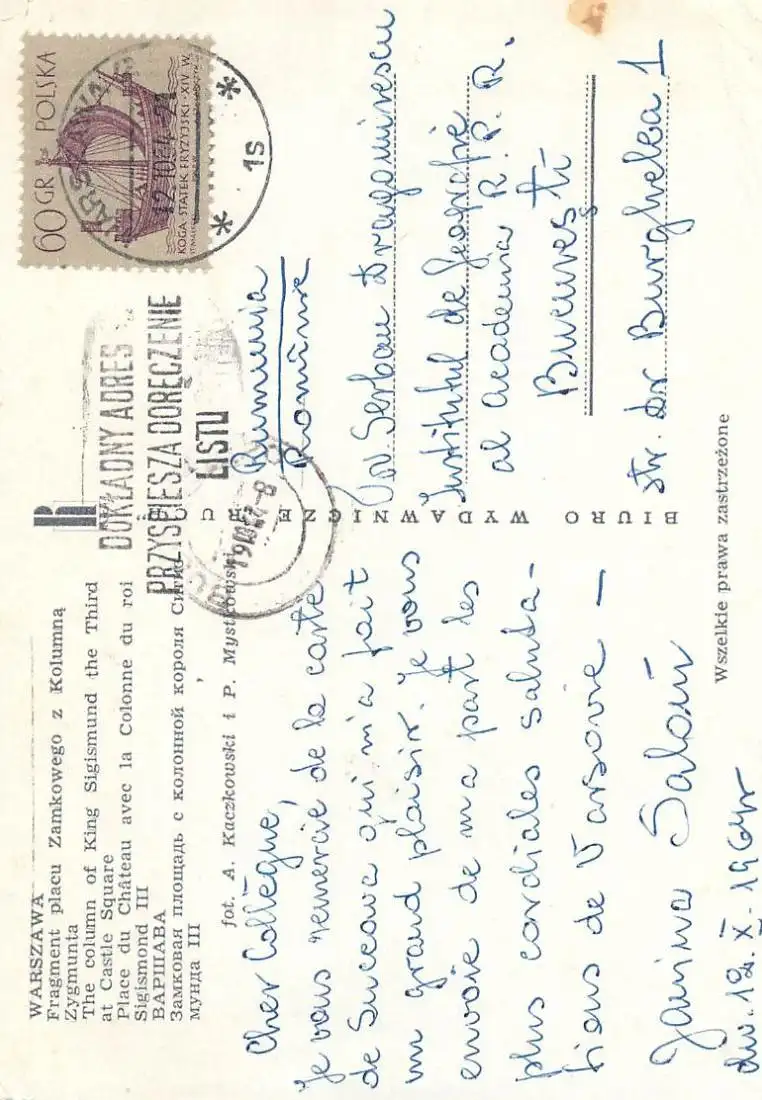 WARSZAWA
Fragment placu Zamkowego z Kolumną
Zygmunta
The column of King Sigismund the Third
at Castle Square
Place du Château avec la Colonne du roi
Sigismond III
ВАРШАВА
Замковая площадь с колонной короля Сигиз-
мунда III
fot. A. Kaczkowski i P. Mystkowski
Cher Collègue,
Je vous remercie de la carte
de Suceava qui m'a fait
un grand plaisir. Je vous
envoie de ma part les
plus cordiales saluta-
tions de Varsovie –
Janina
dn. 12. X. 1964r
BIURO WYDAWNICZE RUCH
60 GR POLSKA
KOGA-STATEK FRYZYJSKI-XIV W.
WARSZAWA
12.10.64
1s
DOKŁADNY ADRES
PRZYŚPIESZA DORĘCZENIE
LISTU
19.10.64-8
Rumunia
Romînia
Serban Dragomirescu
Institutul de Geografie
al Academia R. P. R.
București
str. Dr Burghelea 1
Wszelkie prawa zastrzeżone